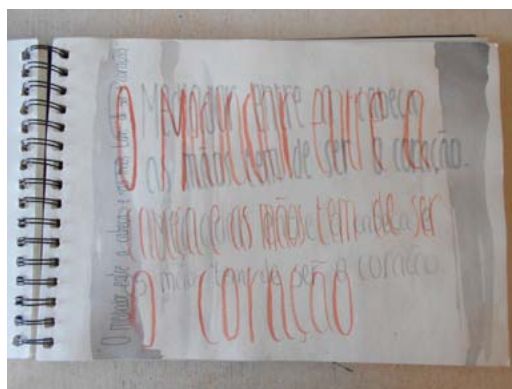 O Mediador entre a
cabeça e as mãos tem de ser
o coração
O Mediador entre a cabeça
e as mãos tem de ser o coração.
as mãos tem de ser o coração
"O mediador entre a cabeça e as mãos tem de ser o coração"